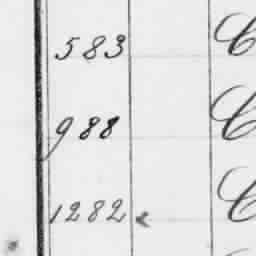 583 C
988 C
1282 C